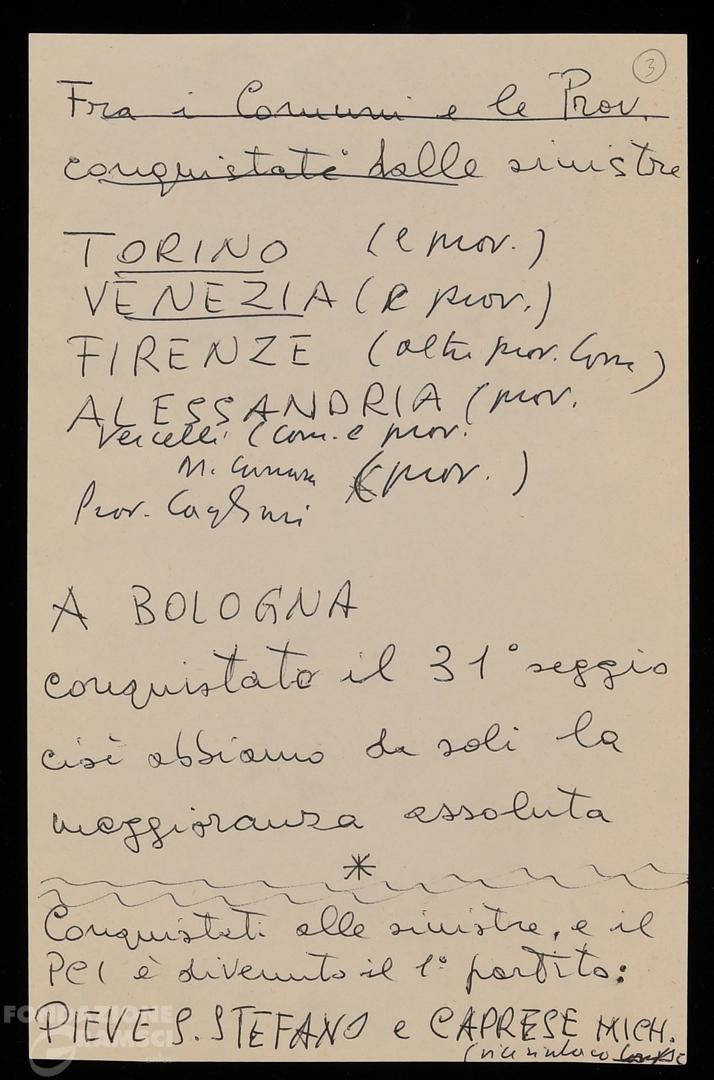 3
Fra i Comuni e le Prov.
conquistate dalle sinistre
TORINO (e prov.)
VENEZIA (e prov.)
FIRENZE (altre prov. Com)
ALESSANDRIA (prov.
Vercelli (com. e prov.
(prov. )
Prov. Cagliari
A BOLOGNA
conquistato il 31° seggio
cioè abbiamo da soli la
maggioranza assoluta
*
Conquistati alle sinistre, e il
PCI è divenuto il 1° partito:
PIEVE S. STEFANO e CAPRESE MICH.
(vicesindaco
FONDAZIONE
GRAMSCI
onlus